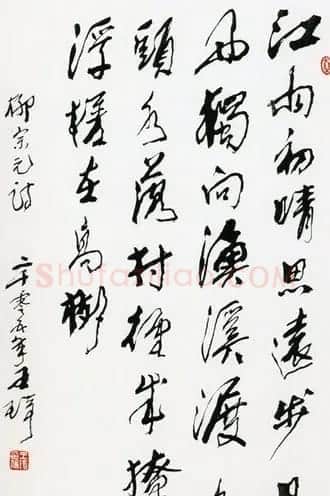 江雨初晴思遠步日
西獨向漁溪渡
頭水落村徑成撩
浮槎在高樹
柳宗元詩